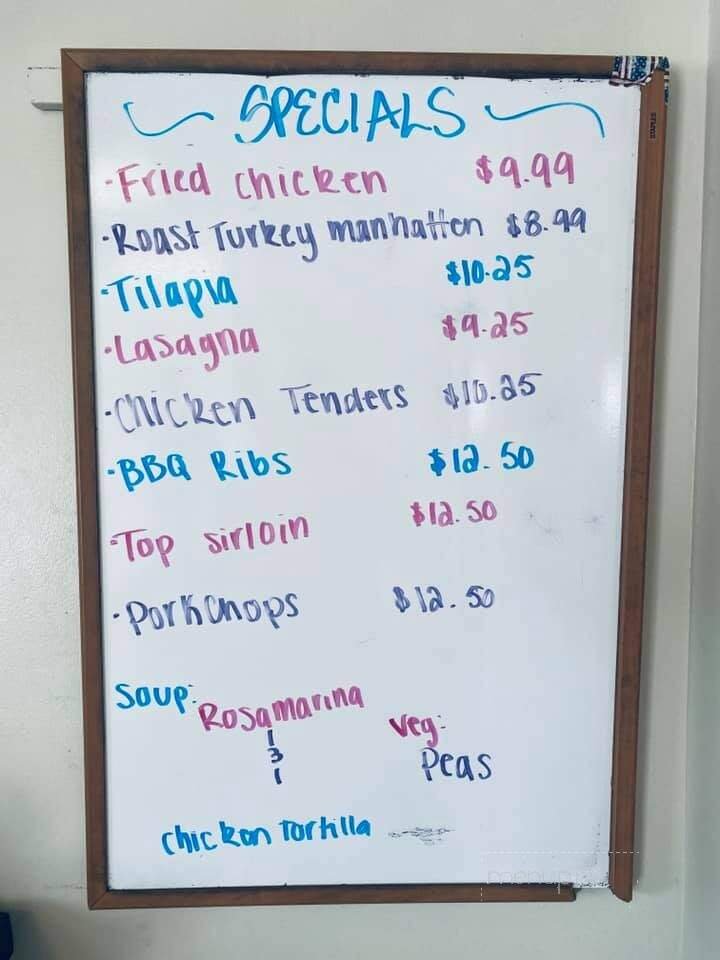 SPECIALS
·Fried chicken $9.99
·Roast Turkey manhatten $8.99
·Tilapia $10.25
·Lasagna $9.25
·Chicken Tenders $10.25
·BBQ Ribs $12.50
·Top sirloin $12.50
·Porkchops $12.50
Soup: Rosamarina
Veg:
1
3
1
Peas
Chicken Tortilla